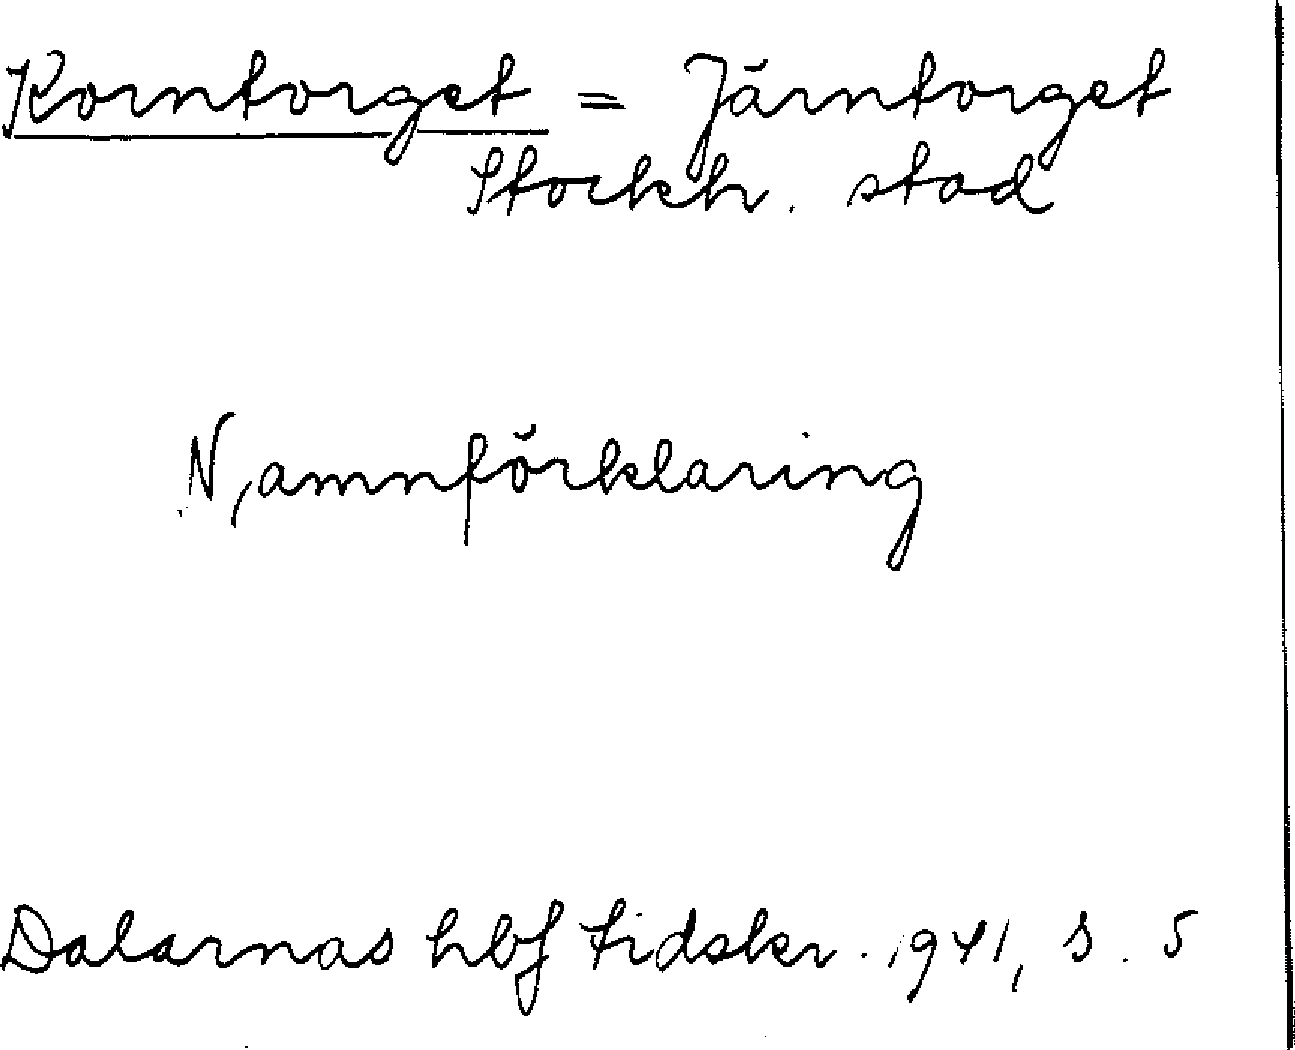 Korntorget = Järntorget
Stockh. stad
Namnförklaring
Dalarnas hbf tidskr. 1941, s. 5